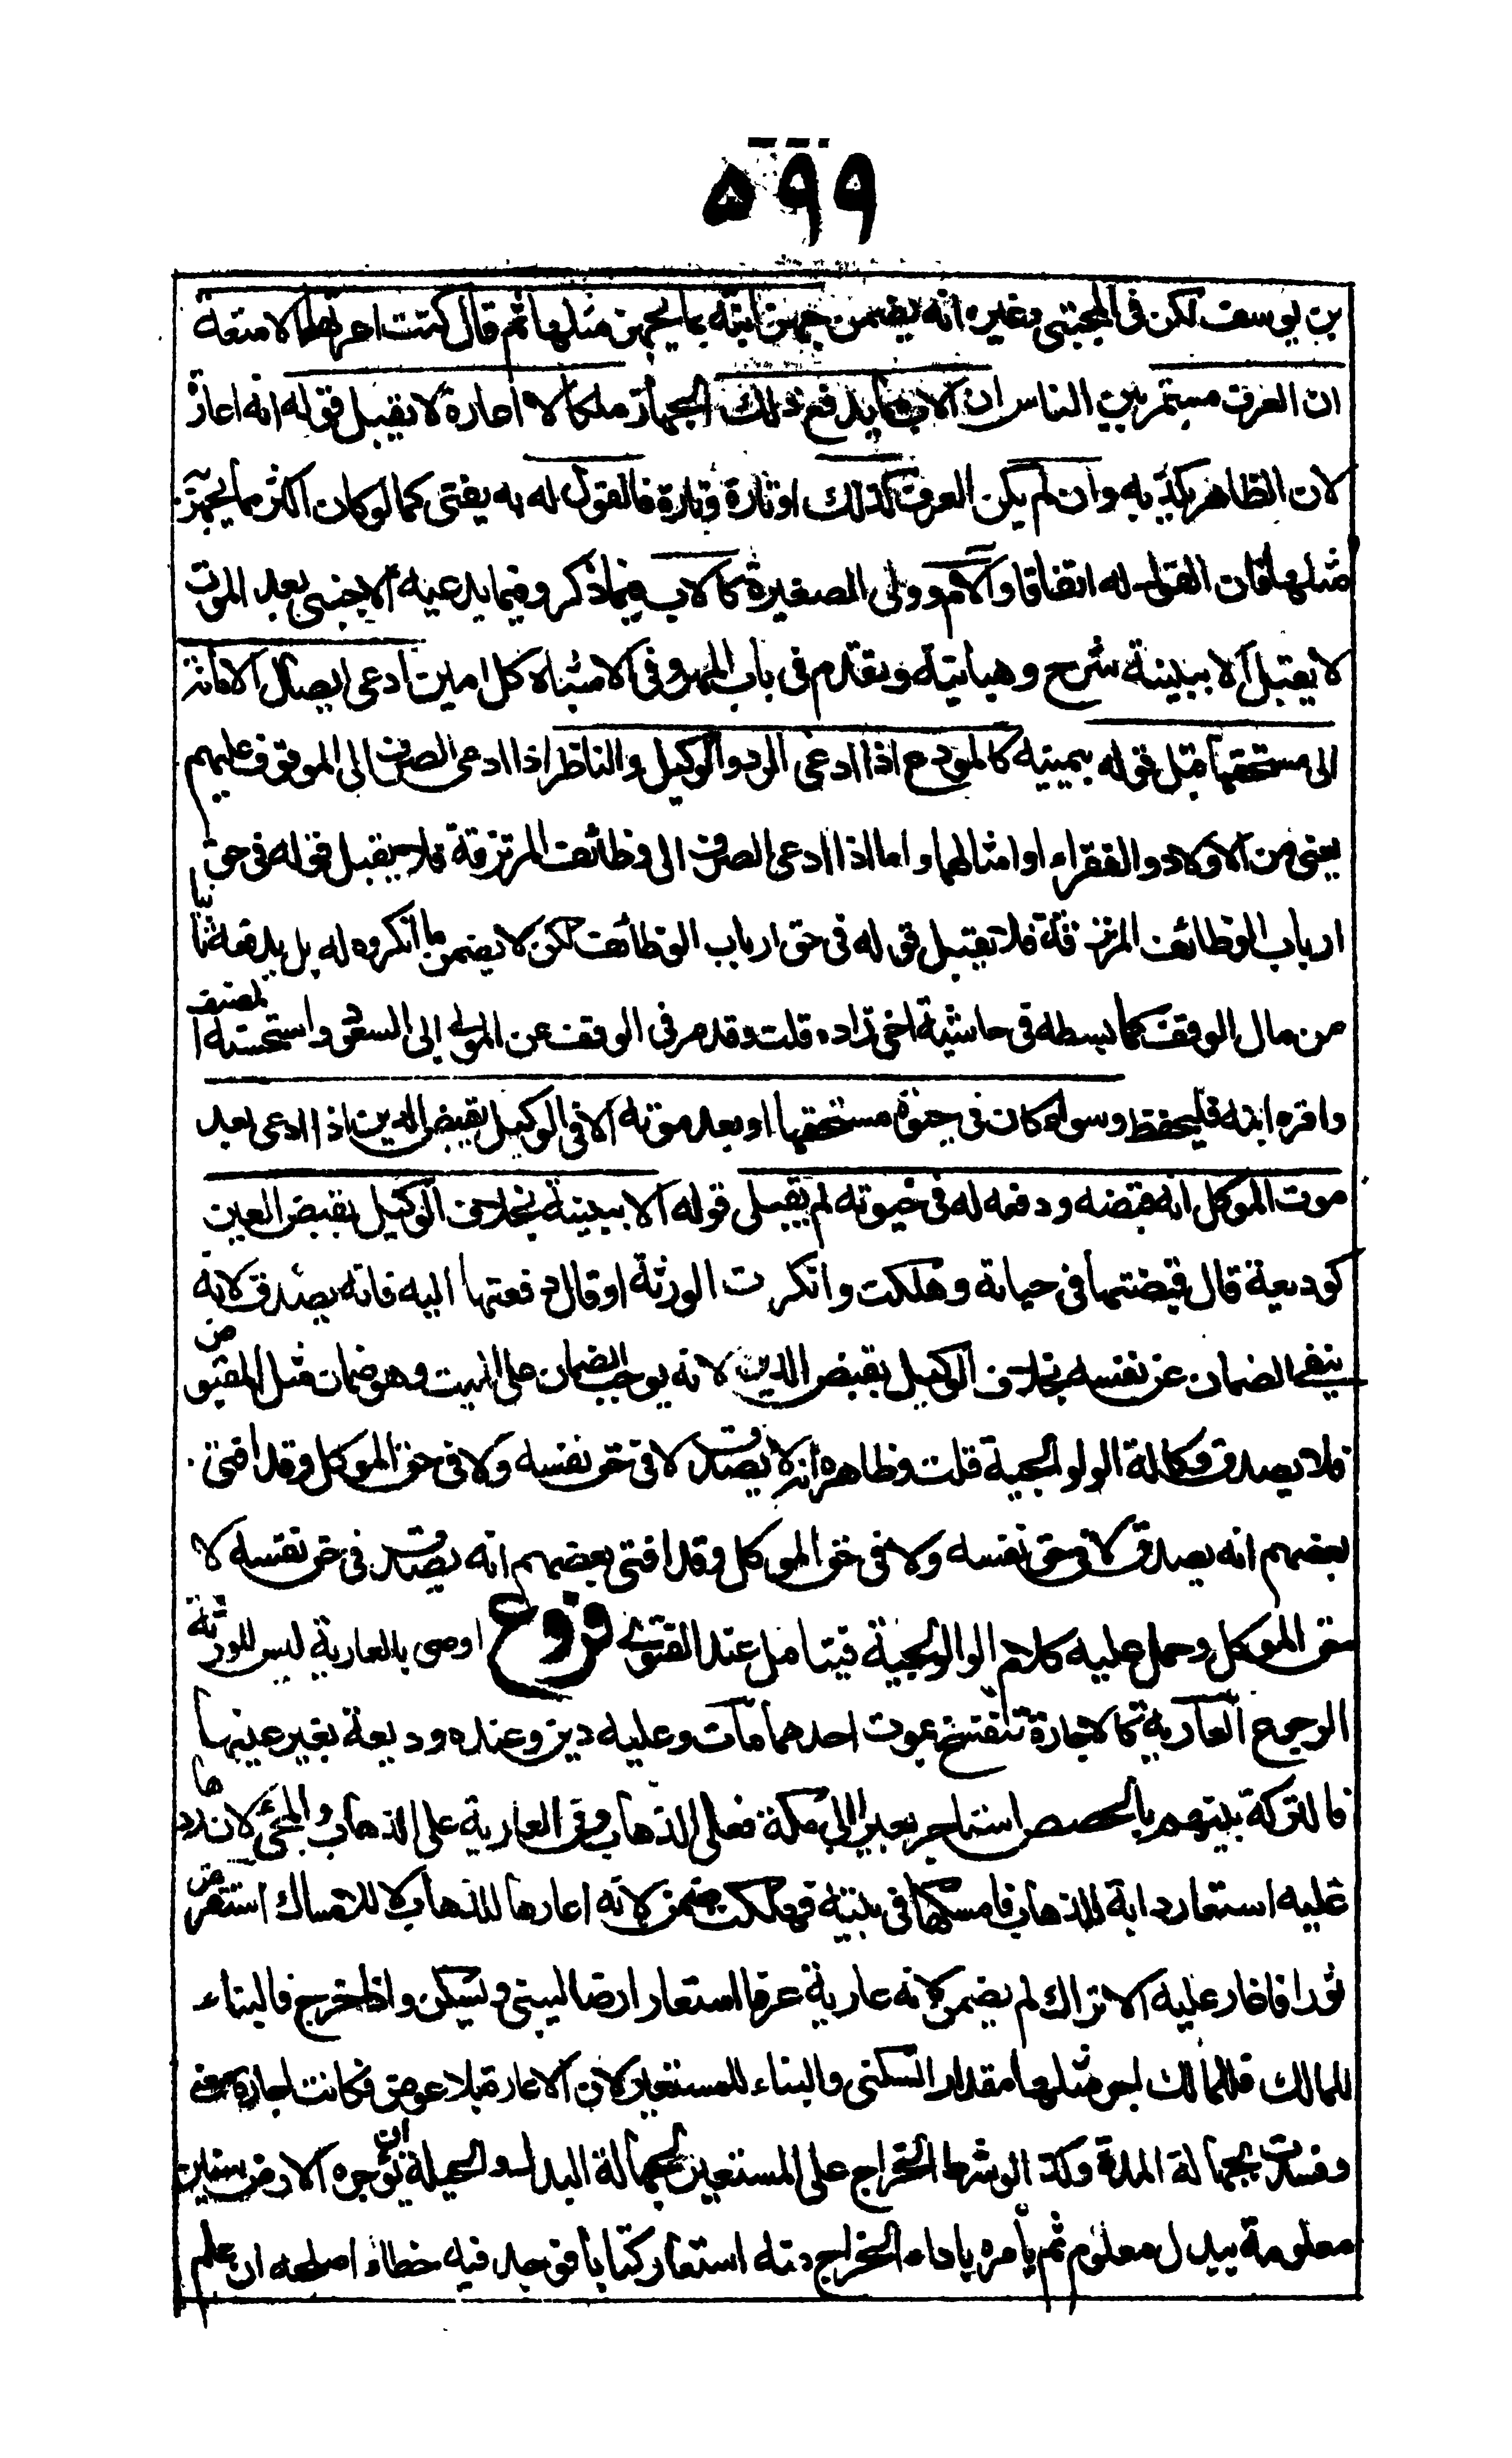 ٥٩٩
بن يوسف لكن فى المجتبى وغيره انه يضمن جهز ابنته بما يجهز مثلها ثم قال كنت اعرتها الامتعة
ان العرف مستمر بين الناس ان الاب يدفع ذلك الجهاز ملكا لا اعارة لا يقبل قوله انه اعارة
لان الظاهر يكذبه وان لم يكن العرف كذلك او تارة وتارة فالقول له به يفتى كما لو كان اكثر مما يجهز
مثلها فان القول له اتفاقا والام وولى الصغيرة كالاب فيما ذكر وفيما يدعيه الاجنبى بعد الموت
لا يقبل الا ببينة شرح وهبانية وتقدم فى باب المهر وفى الاشباه كل امين ادعى ايصال الامانة
الى مستحقها قبل قوله بيمينه كالمودع اذا ادعى الرد والوكيل والناظر اذا ادعى الصرف الى الموقوف عليهم
يعنى من الاولاد والفقراء او امثالهما واما اذا ادعى الصرف الى وظائف المرتزقة فلا يقبل قوله فى حق
ارباب الوظائف المرتزقة فلا يقبل قوله فى حق ارباب الوظائف لكن لا يضمن ما انكروه له بل يدفعه ثانيا
من مال الوقف كما بسطه فى حاشية اخى زاده قلت وقد مر فى الوقف عن المولى ابى السعود واستحسنه المصنف
واقره ابنه فليحفظ وسواء كان فى حيوة مستحقها او بعد موته الا فى الوكيل بقبض الدين اذا ادعى بعد
موت الموكل انه قبضه ودفعه له فى حيوته لم يقبل قوله الا ببينة بخلاف الوكيل بقبض العين
كوديعة قال قبضتها فى حياته وهلكت وانكرت الورثة او قال دفعتها اليه فانه يصدق لانه
ينفى الضمان عن نفسه بخلاف الوكيل بقبض الدين لانه يوجب الضمان على الميت وهو ضمان مثل المقبوض
فلا يصدق وكالة الولوالجية قلت وظاهره انه لا يصدق لا فى حق نفسه ولا فى حق الموكل وقد افتى
بعضهم انه يصدق لا فى حق نفسه ولا فى حق الموكل وقد افتى بعضهم انه يصدق فى حق نفسه لا
حق الموكل وحمل عليه كلام الوالولجية فيتامل عند الفتوى فروع اوصى بالعارية ليس للورثة
الرجوع العارية كالاجارة تنفسخ بموت احدهما مات وعليه دين وعنده وديعة بغير عينها
فالتركة بينهم بالحصص استاجر بعيرا الى مكة فعلى الذهاب وفى العارية على الذهاب والمجئ لان ردها
عليه استعار دابة للذهاب فامسكها فى بيته فهلكت ضمن لانه اعارها للذهاب لا للامساك استقرض
ثورا فاغار عليه الاتراك لم يضمن لانه عارية عرفا استعار ارضا ليبنى ويسكن واذا خرج فالبناء
للمالك فللمالك اجر مثلها مقدار السكنى والبناء للمستعير لان الاعارة بلا عوض فكانت اجارة معنى
وفسدت بجهالة المدة وكذا لو شرط الخراج على المستعير لجهالة البدل والحيلة ان يوجره الارض سنين
معلومة ببدل معلوم ثم يأمره باداء الخراج منه استعار كتابا فوجد فيه خطاء اصلحه ان علم